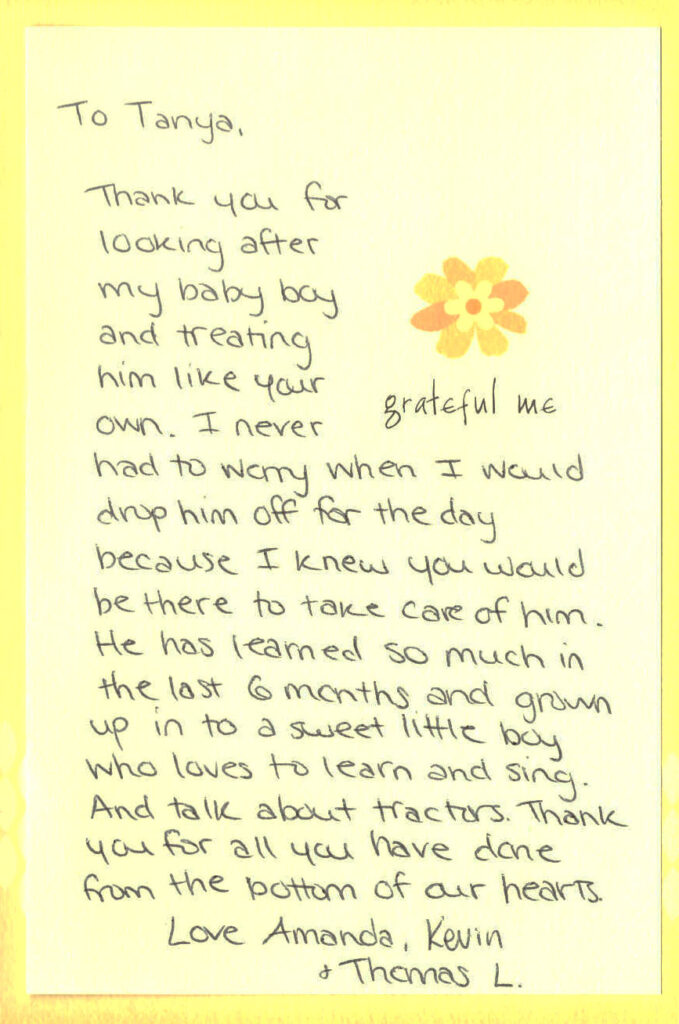 To Tanya,
Thank you for
looking after
my baby boy
and treating
him like your
own. I never
grateful me
had to worry when I would
drop him off for the day
because I knew you would
be there to take care of him.
He has learned so much in
the last 6 months and grown
up in to a sweet little boy
who loves to learn and sing.
And talk about tractors. Thank
you for all you have done
from the bottom of our hearts.
Love Amanda, Kevin
& Thomas L.